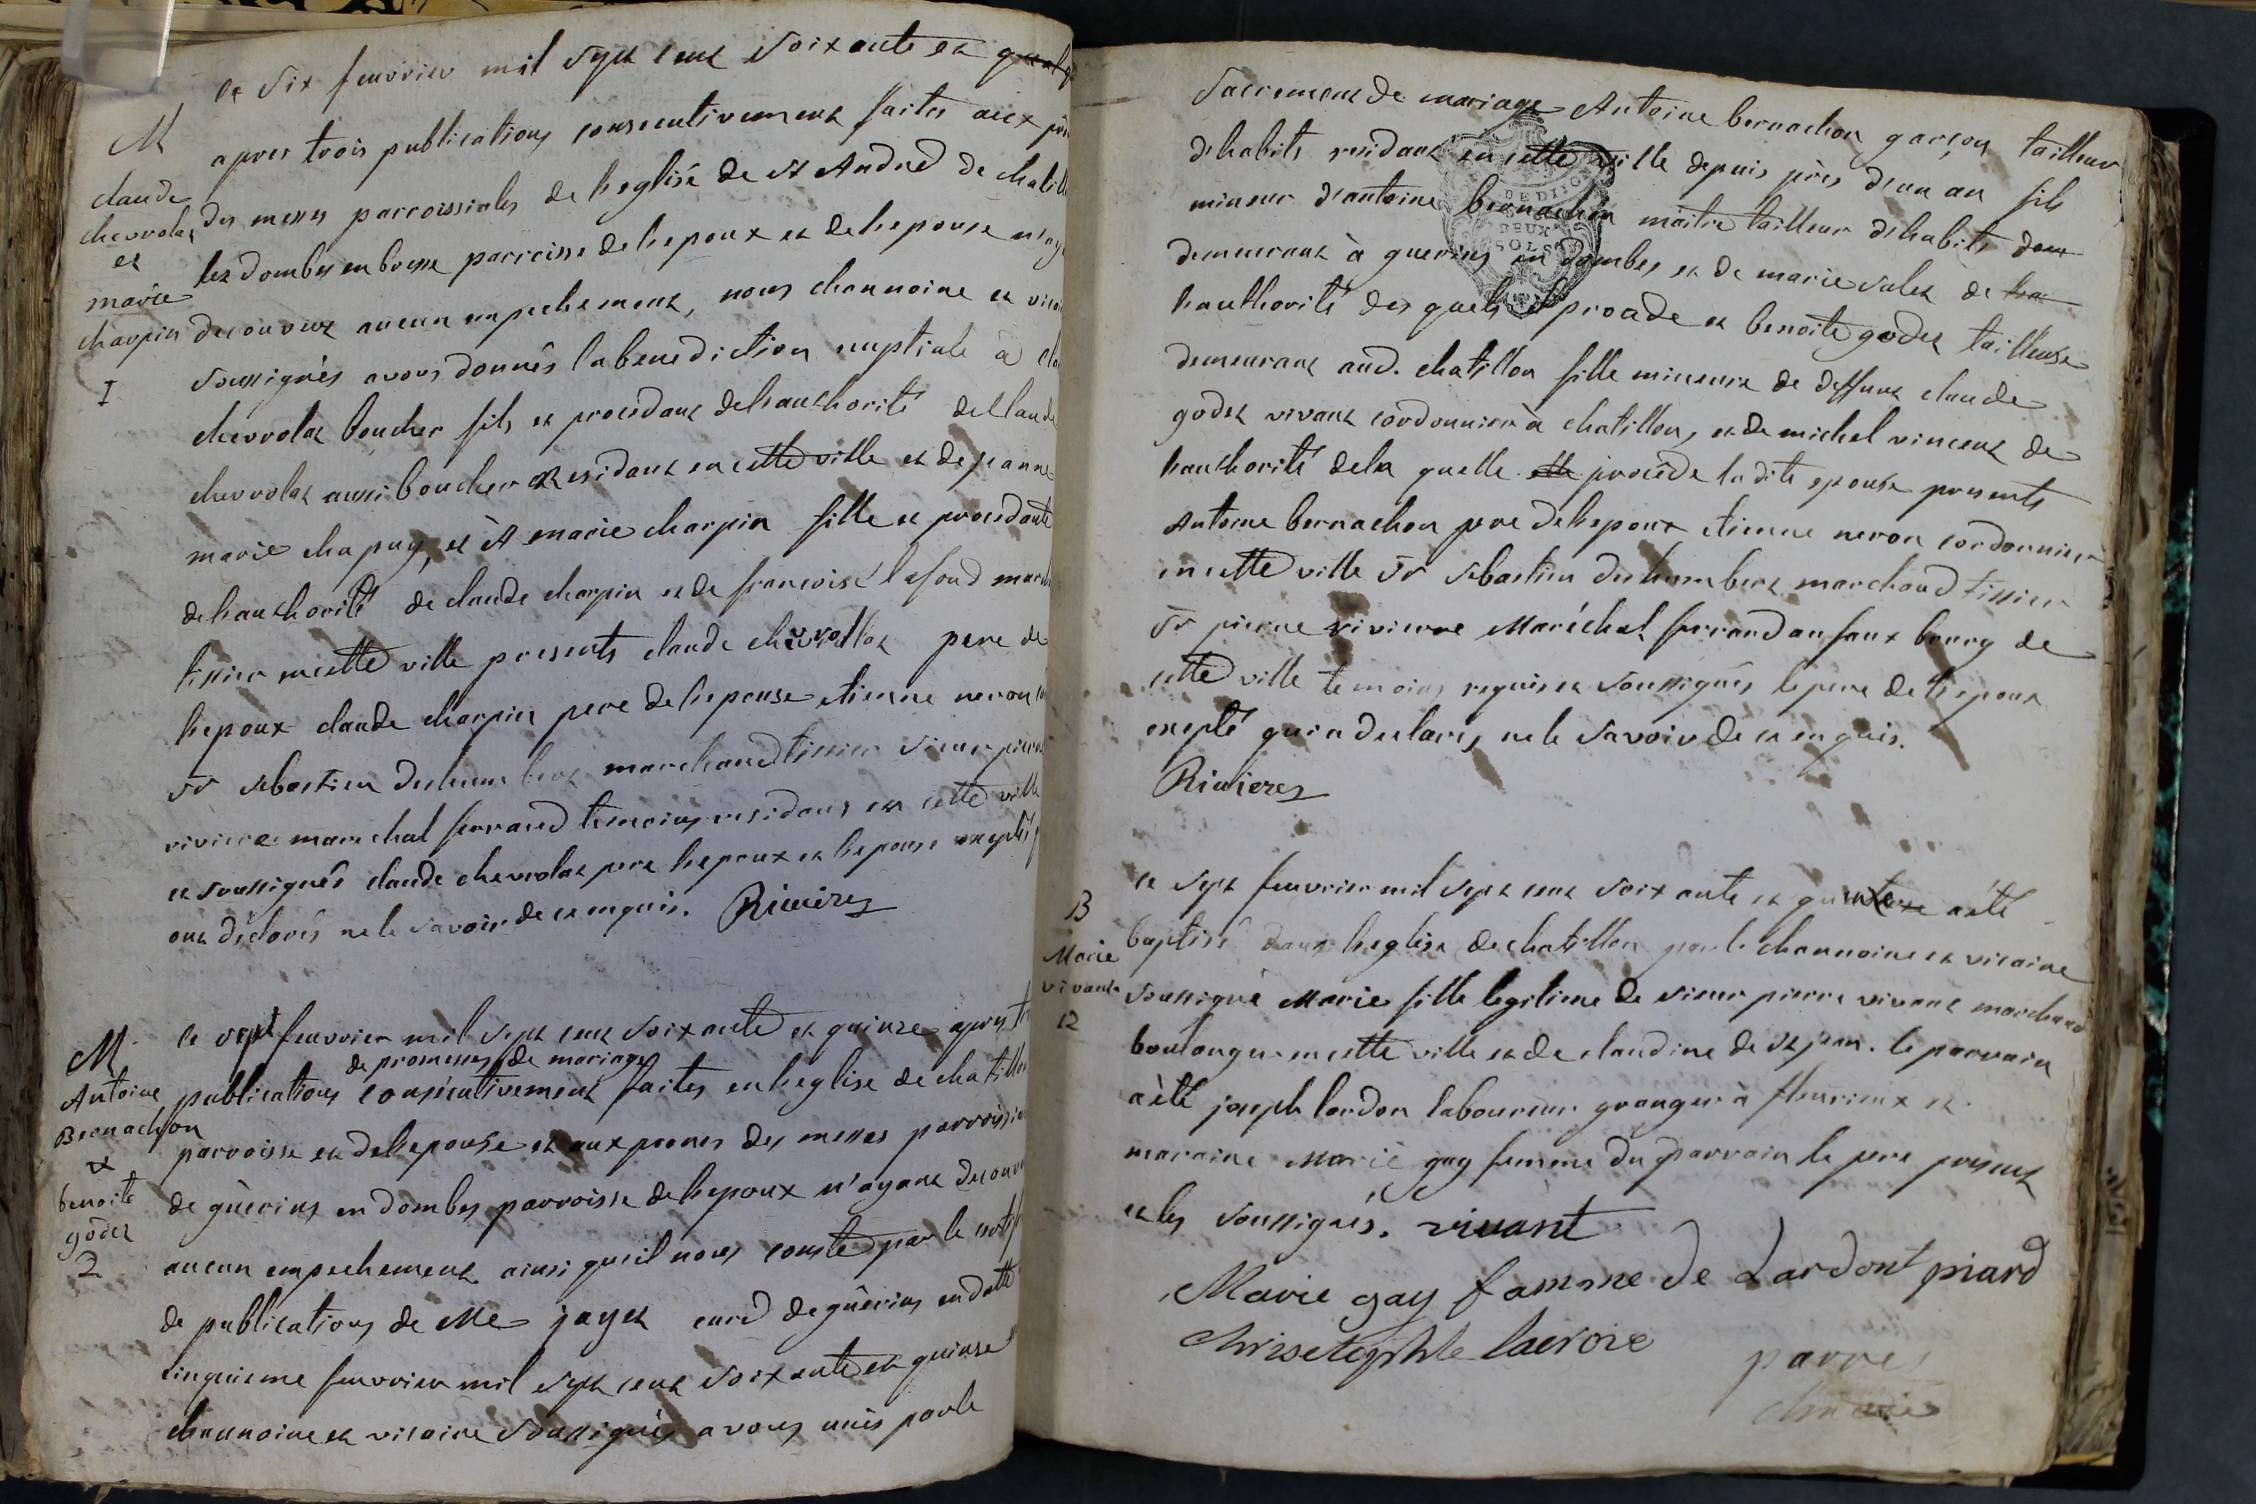 le six feuvrier mil sept cent soixante et
M
apres trois publications consecutivement faites aux
claude
chevrolat
et
marie
charpin
I
des messes parroissiales de leglise de st André de chatill
les dombes en bresse parroisse de lepoux et de lepouse
decouvert aucun empechement, nous channoine et
soussignés avons donnés la benediction nuptiale à
chevrolat boucher fils et procedant de lauthorité de claude
chevrolat aussi boucher residant en cette ville et de jeanne
marie chapuy, et à marie charpin fille et procedante
de lauthorité de claude charpin et de francoise lafond
tissier en cette ville presents claude chevrollat pere de
lepoux claude charpin pere de lepouse etienne neron
sr sebastien deshumbert marchand tissier sieur
riviere marechal ferrand temoins residans en cette ville
et soussignés claude chevrolat pere lepoux et lepouse exeptés
ont déclarés ne le savoir de ce enquis. Rivieres
M
Antoine
Bernachon
et
benoite
godet
2
le sept feuvrier mil sept cent soixante et quinze apres
de promesses de mariage
publications consécutivement faites en leglise de chatillon
parroisse de lepouse et aux prones des messes
de guèrins en dombes parroisse de lepoux n'ayant
aucun empechement ainsi quil nous conste par le
de publications de Me jayet curé de guèrins en datte
cinquieme feuvrier mil sept cent soixante et quinse
channoine et vicaire soussignés avons unis par le
sacrement de mariage Antoine bernachon garçon tailleur
dhabits residant en cette ville depuis près dun an fils
mineur d'antoine bernachon maitre tailleur dhabits
demeurant à guerins en dombes et de marie de
lauthorité des quels il procede et benoite godet tailleuse
demeurant aud. chatillon fille mineure de deffunt claude
godet vivant cordonnier à chatillon, et de michel vincent de
lauthorité de la quelle elle procède ladite epouse presents
Antoine bernachon pere de lepoux etienne neron cordonnier
en cette ville sr sebastien deshumbert marchand tissier
sr pierre riviere Maréchal ferrand au faux bourg de
cette ville temoins requis et soussignés le pere de lepoux
exepté qui a declarés ne le savoir de ce enquis.
Rivieres
B
Marie
vivant
12
le sept feuvrier mil sept cent soixante et quinze a été
baptisé dans leglise de chatillon par le channoine et vicaire
soussigné Marie fille legitime de sieur pierre vivant marchand
boulanger en cette ville et de claudine de st jean. le parrain
a été joseph lardon laboureur granger à fleurieux et
maraine Marie gay femme du parrain le pere present
et les soussignés. vivant
Marie gay famme de Lardont piard
Chrisetophle lacroie